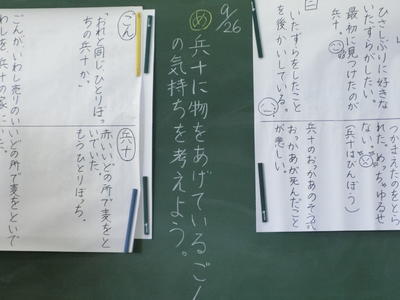 ひさしぶりに好きな
いたずらがしたい。
最初に見つけたのが
兵十。
つかまえたのをとら
れた。めっちゃゆるせ
ない。
(兵十はびんぼう)
二
いたずらをしたこと
を後かいしている。
兵十のおっかあのそう式
おっかあが死んだこと
が悲しい。
9/26
め 兵十に物をあげているごん
の気持ちを考えよう。
ごん
「おれと同じひとりぼっ
ちの兵十か。」
兵十
赤いいどの所で麦をと
いでいた。
もうひとりぼっち。
ごんが、いわし売りのい
わしを兵十の家に
いどの所で麦をといで